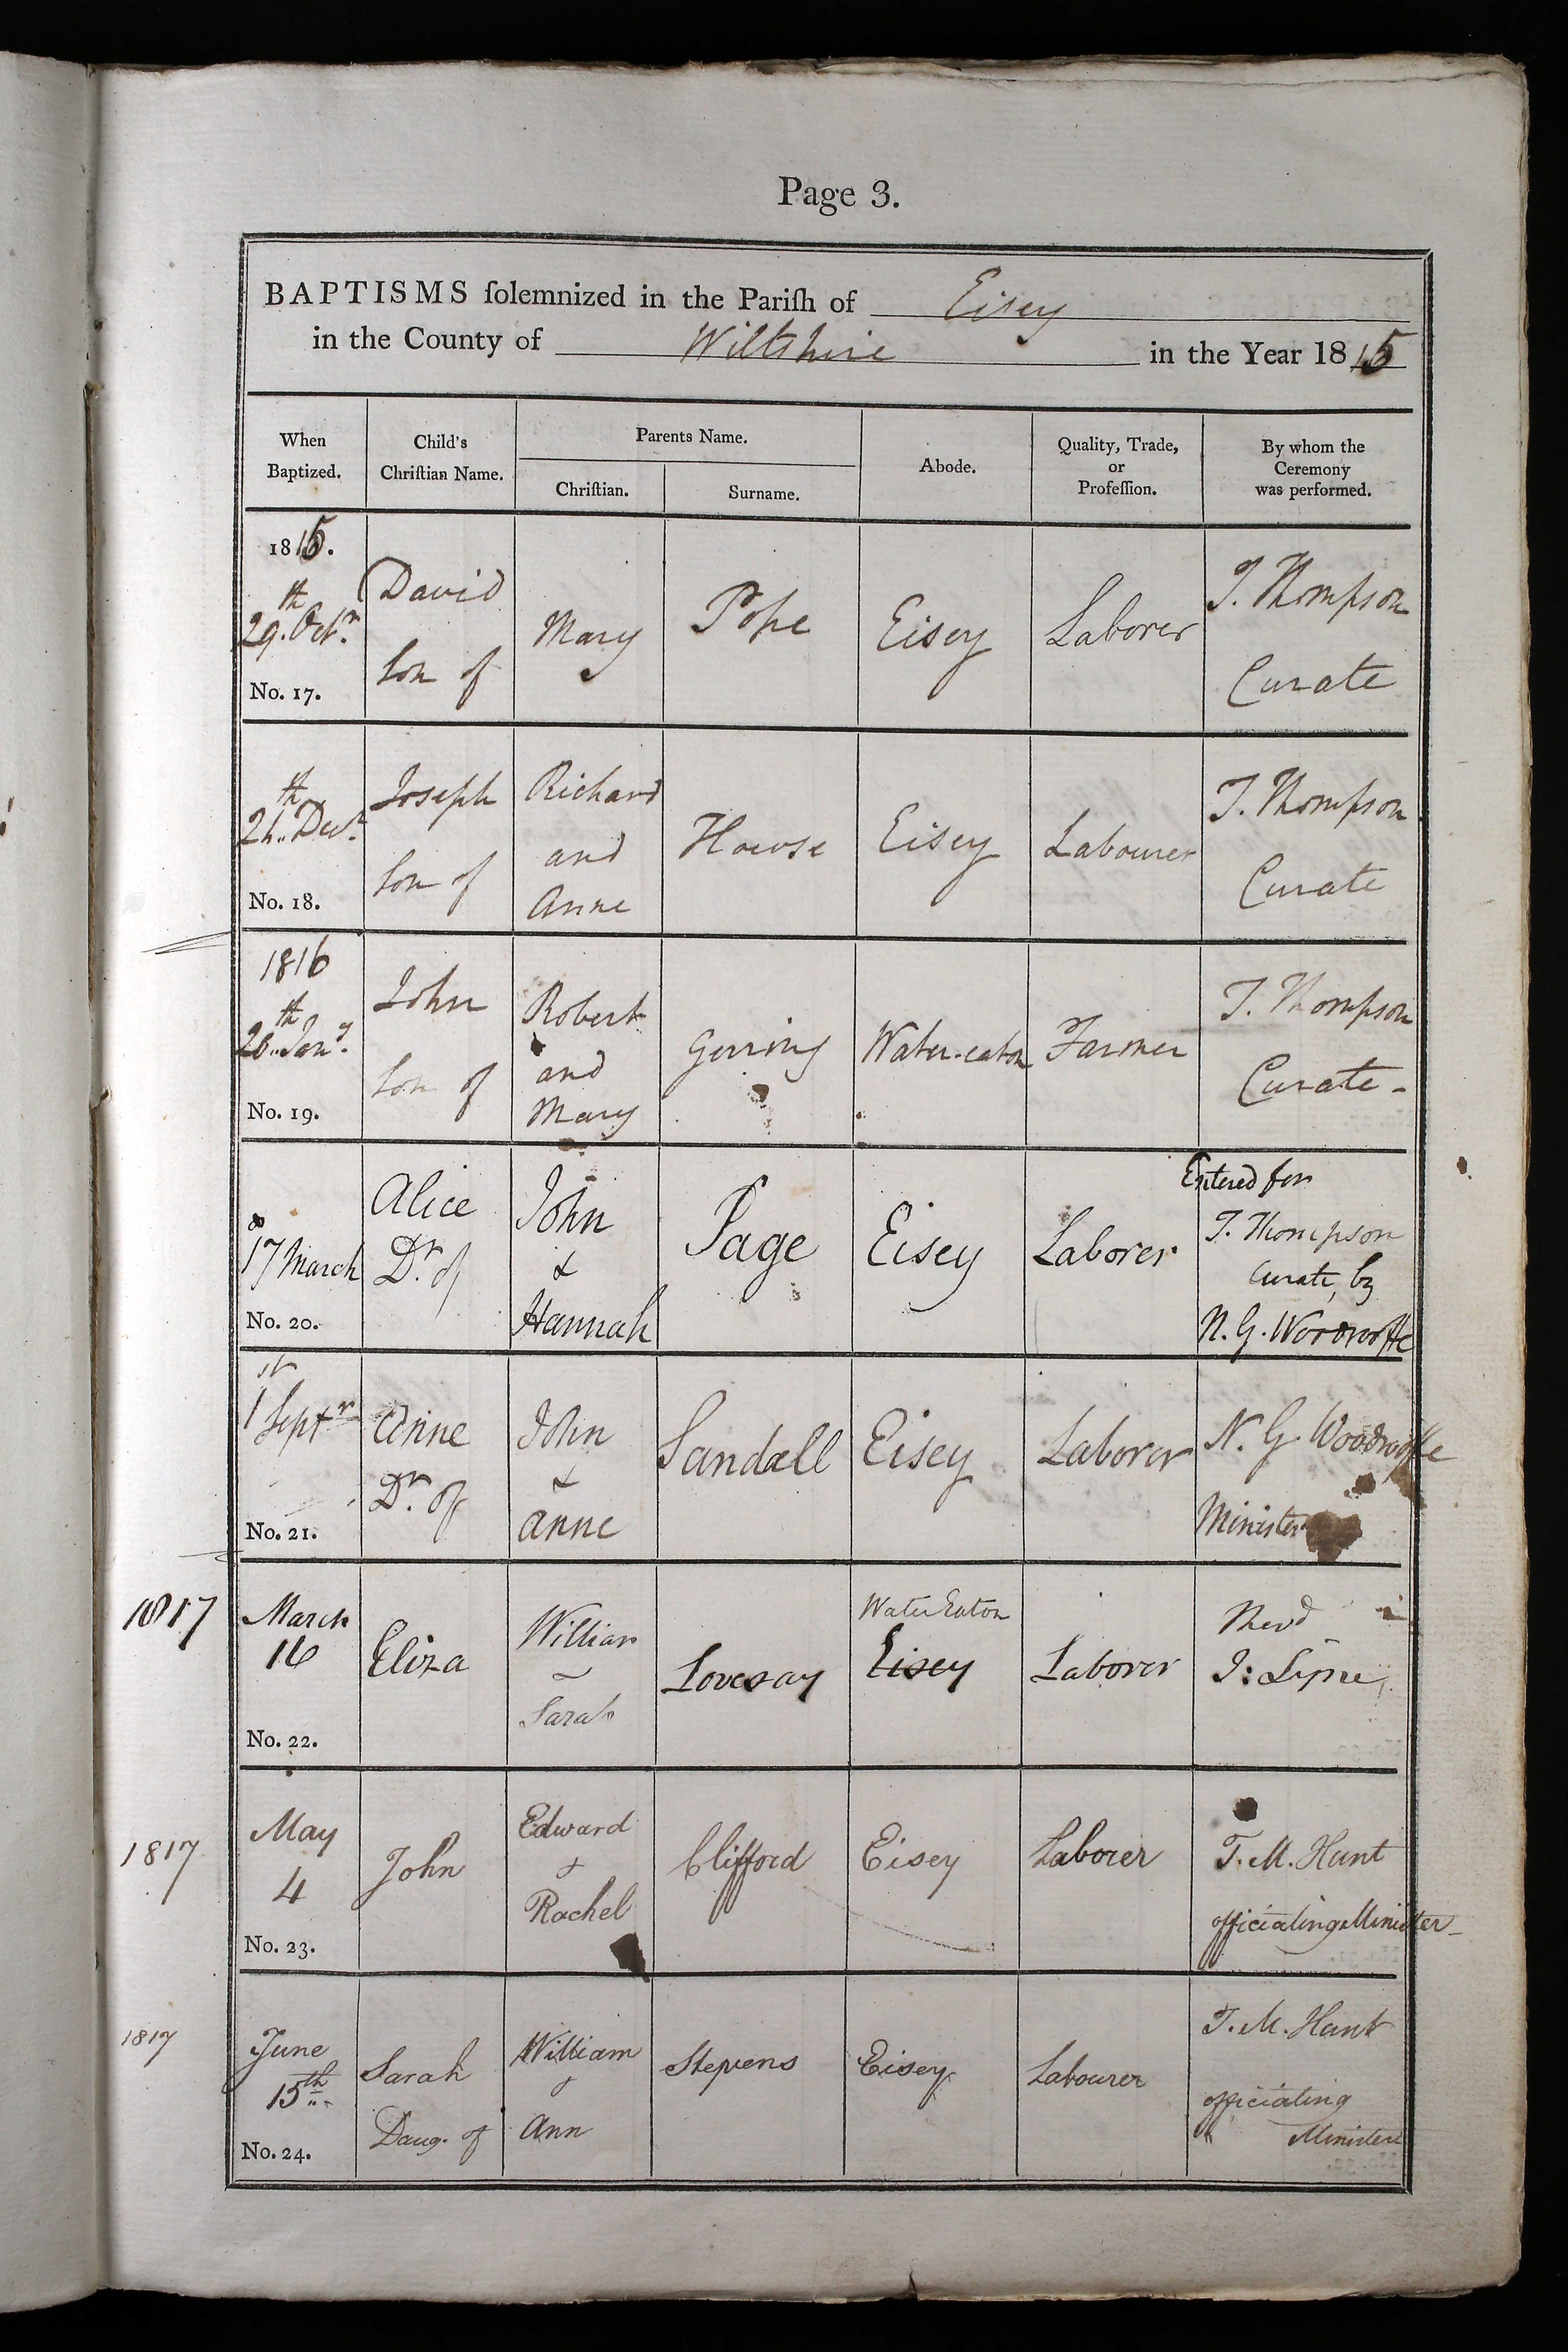 Page 3.
BAPTISMS ſolemnized in the Pariſh of Eisey
in the County of Wiltshire in the Year 1815
When Baptized.
Child's Chriſtian Name.
Parents Name.
Chriſtian.
Surname.
Abode.
Quality, Trade, or Profeſſion.
By whom the Ceremony was performed.
1815.
29th. Octr.
No. 17.
David
Son of
Mary
Pope
Eisey
Laborer
T. Thompson
Curate
Decr.
No. 18.
Joseph
Son of
Richard
and
Anne
Howse
Eisey
Labourer
T. Thompson
Curate
1816
Jany.
No. 19.
John
Son of
Robert
and
Mary
Gerring
Water-eaton
Farmer
T. Thompson
Curate -
17 March
No. 20.
Alice
Dr. of
John
&
Hannah
Page
Eisey
Laborer
Entered for
T. Thompson
Curate, by
N. G. Woodrooffe
1st Septr
No. 21.
Anne
Dr. of
John
&
Anne
Sandall
Eisey
Laborer
N. G. Woodrooffe
Minister
1817
March
16
No. 22.
Eliza
William
Sarah
Lovesay
Water Eaton
Eisey
Laborer
J:
1817
May
4
No. 23.
John
Edward
&
Rachel
Clifford
Eisey
Laborer
T. M. Hunt
officiating Minister
1817
June
15th
No. 24.
Sarah
Daug. of
William
&
Ann
Stevens
Eisey
Labourer
T. M. Hunt
officiating
Minister